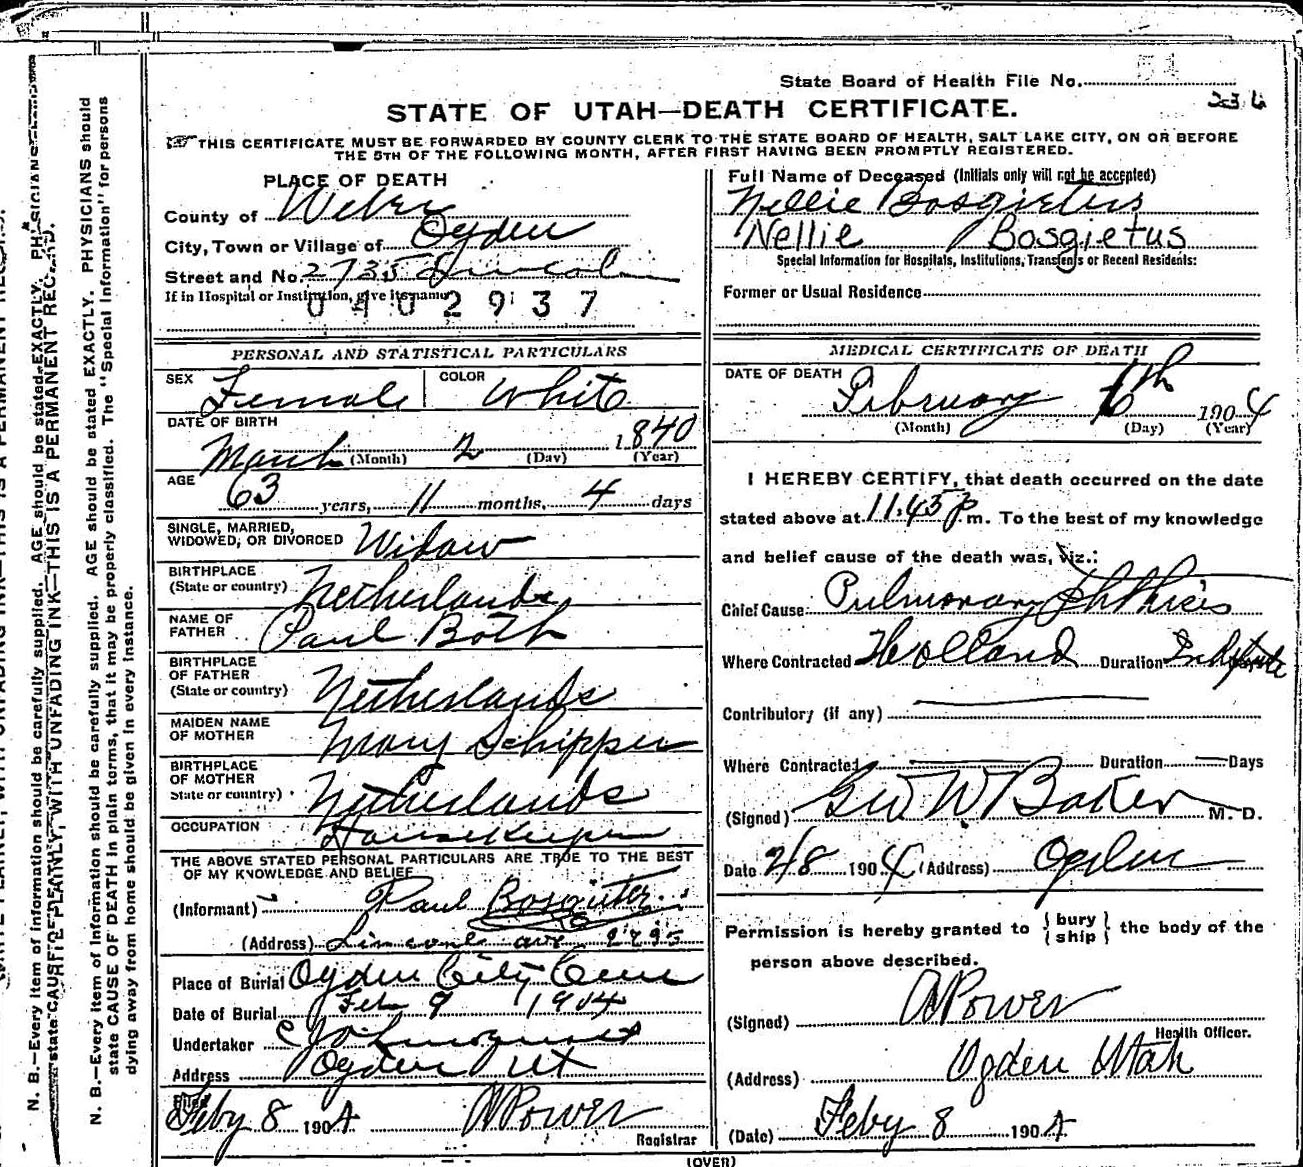 State Board of Health File No. 51
234
STATE OF UTAH—DEATH CERTIFICATE.
THIS CERTIFICATE MUST BE FORWARDED BY COUNTY CLERK TO THE STATE BOARD OF HEALTH, SALT LAKE CITY, ON OR BEFORE
THE 5TH OF THE FOLLOWING MONTH, AFTER FIRST HAVING BEEN PROMPTLY REGISTERED.
PLACE OF DEATH
County of Weber
City, Town or Village of Ogden
Street and No. 2735 Lincoln
If in Hospital or Institution, give its name
0402937
Full Name of Deceased (Initials only will not be accepted)
Nellie Bosgietus
Nellie Bosgietus
Special Information for Hospitals, Institutions, Transfers or Recent Residents:
Former or Usual Residence
PERSONAL AND STATISTICAL PARTICULARS
SEX Female COLOR White
DATE OF BIRTH
March 2 1840
(Month) (Day) (Year)
AGE
63 years, 11 months, 4 days
SINGLE, MARRIED,
WIDOWED, OR DIVORCED Widow
BIRTHPLACE
(State or country) Netherlands
NAME OF
FATHER Paul Both
BIRTHPLACE
OF FATHER
(State or country) Netherlands
MAIDEN NAME
OF MOTHER Mary Schipper
BIRTHPLACE
OF MOTHER
State or country) Netherlands
OCCUPATION Housekeeper
THE ABOVE STATED PERSONAL PARTICULARS ARE TRUE TO THE BEST
OF MY KNOWLEDGE AND BELIEF
(Informant) Paul
(Address)
Place of Burial Ogden City Cem
Date of Burial Feb 9 1904
Undertaker
Address Ogden Ut
Filed
Feby 8 1904 A Power
Registrar
MEDICAL CERTIFICATE OF DEATH
DATE OF DEATH
February 6th 1904
(Month) (Day) (Year)
I HEREBY CERTIFY, that death occurred on the date
stated above at 11.45 p.m. To the best of my knowledge
and belief cause of the death was, viz.:
Chief Cause: Pulmonary Phthisis
Where Contracted Holland Duration
Contributory (if any)
Where Contracted Duration Days
(Signed) Geo W Baker M. D.
Date 2/8 1904 (Address) Ogden
Permission is hereby granted to {bury ship} the body of the
person above described.
(Signed) A Power
Health Officer.
(Address) Ogden Utah
(Date) Feby 8 1904
(OVER)
N. B.—Every item of information should be carefully supplied. AGE should be stated EXACTLY. PHYSICIANS
state CAUSE PLAINLY, WITH UNFADING INK—THIS IS A PERMANENT RECORD.
N. B.—Every item of Information should be carefully supplied. AGE should be stated EXACTLY. PHYSICIANS should
state CAUSE OF DEATH in plain terms, that it may be properly classified. The "Special Information" for persons
dying away from home should be given in every instance.